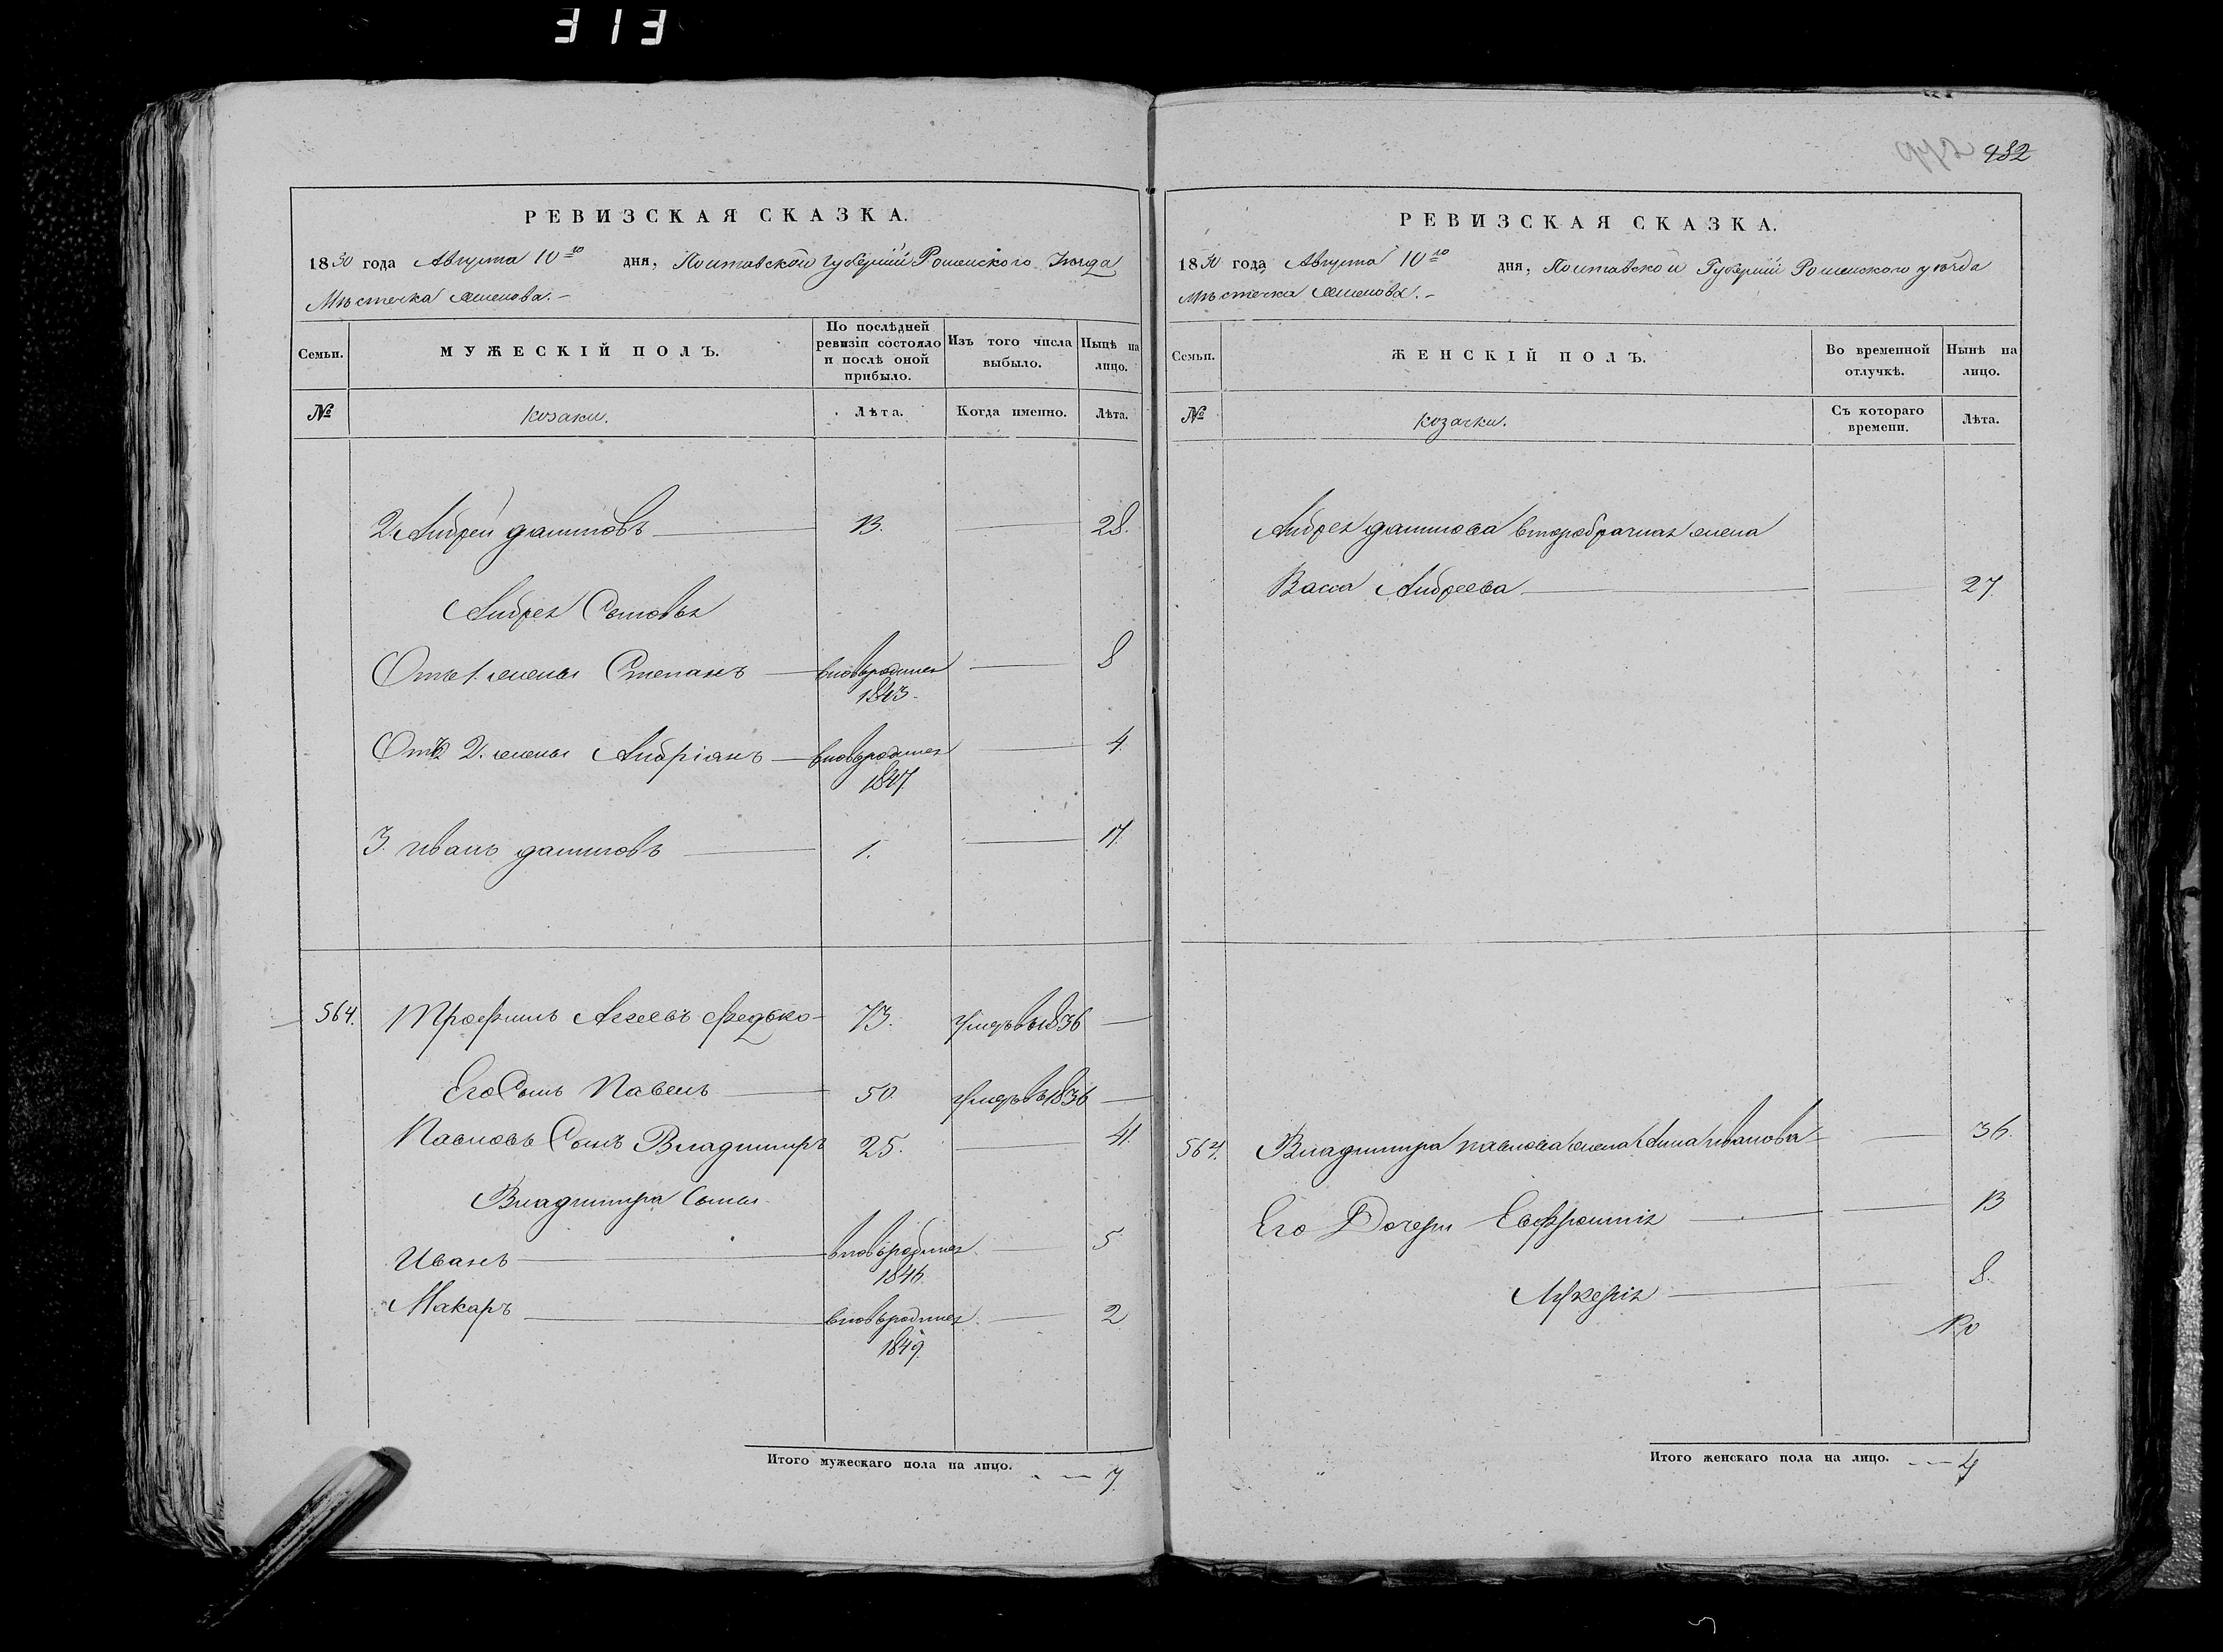 313
932
РЕВИЗСКАЯ СКАЗКА.
1850 года Августа 10го дня, Полтавской Губерніи Роменскаго Уѣзда
Мѣстечка Смелова.-
Семьи. МУЖЕСКІЙ ПОЛЪ. По послѣдней ревизіи состояло и послѣ оной прибыло. Изъ того числа выбыло. Нынѣ на лицо.
№ козаки. Лѣта. Когда именно. Лѣта.
2. Андрей даниловъ 13. 28.
Андрея Сыновья
Отъ 1. жены Степанъ вновьродился 1843. 8
Отъ 2. жены Андріанъ вновьродился 1847. 4.
3. иванъ даниловъ 1. 17.
564. Трофимъ Агеевъ Федько 73. умеръ въ 1836
Его Сынъ Павелъ 50. умеръ въ 1836
Павловъ Сынъ Владимиръ 25. 41.
Владимира Сыны
Иванъ вновьродился 1846. 5
Макаръ вновьродился 1849. 2
Итого мужескаго пола на лицо. 7.
РЕВИЗСКАЯ СКАЗКА.
1850 года Августа 10го дня, Полтавской Губерніи Роменскаго уѣзда
Мѣстечка Смелова.-
Семьи. ЖЕНСКІЙ ПОЛЪ. Во временной отлучкѣ. Нынѣ на лицо.
№ козачки. Съ котораго времени. Лѣта.
Андрея данилова второбрачная жена
Васса Андреева 27.
564. Владимира павлова жена Анна иванова 36.
Его Дочери Евфросинія 13
Лукерія 8.
Итого женскаго пола на лицо. 4